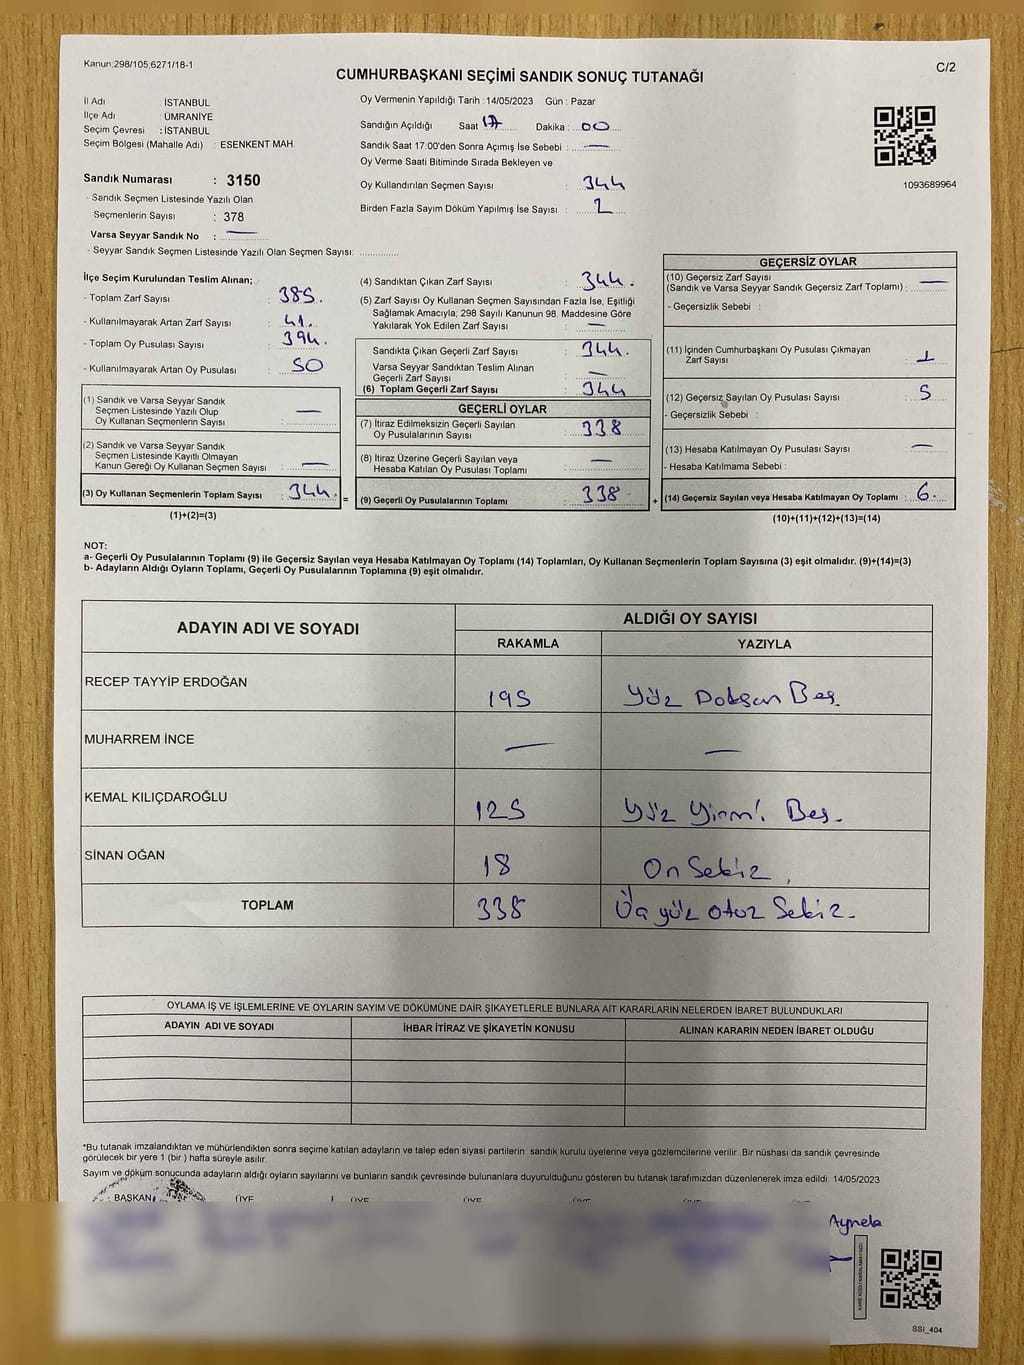 Kanun;298/105;6271/18-1
C/2
CUMHURBAŞKANI SEÇİMİ SANDIK SONUÇ TUTANAĞI
İl Adı : İSTANBUL
İlçe Adı : ÜMRANİYE
Seçim Çevresi : İSTANBUL
Seçim Bölgesi (Mahalle Adı) : ESENKENT MAH.
Sandık Numarası : 3150
- Sandık Seçmen Listesinde Yazılı Olan
Seçmenlerin Sayısı : 378
Varsa Seyyar Sandık No : —
- Seyyar Sandık Seçmen Listesinde Yazılı Olan Seçmen Sayısı:
Oy Vermenin Yapıldığı Tarih :14/05/2023 Gün : Pazar
Sandığın Açıldığı Saat 17 Dakika : 00
Sandık Saat 17:00'den Sonra Açımış İse Sebebi : —
Oy Verme Saati Bitiminde Sırada Bekleyen ve
Oy Kullandırılan Seçmen Sayısı : 344
Birden Fazla Sayım Döküm Yapılmış İse Sayısı :
1093689964
İlçe Seçim Kurulundan Teslim Alınan;
- Toplam Zarf Sayısı : 385.
- Kullanılmayarak Artan Zarf Sayısı : 41.
- Toplam Oy Pusulası Sayısı : 394.
- Kullanılmayarak Artan Oy Pusulası : 50
(1) Sandık ve Varsa Seyyar Sandık
Seçmen Listesinde Yazılı Olup
Oy Kullanan Seçmenlerin Sayısı : —
(2) Sandık ve Varsa Seyyar Sandık
Seçmen Listesinde Kayıtlı Olmayan
Kanun Gereği Oy Kullanan Seçmen Sayısı : —
(3) Oy Kullanan Seçmenlerin Toplam Sayısı : 344. =
(1)+(2)=(3)
(4) Sandıktan Çıkan Zarf Sayısı : 344.
(5) Zarf Sayısı Oy Kullanan Seçmen Sayısından Fazla İse, Eşitliği
Sağlamak Amacıyla; 298 Sayılı Kanunun 98. Maddesine Göre
Yakılarak Yok Edilen Zarf Sayısı : —
Sandıkta Çıkan Geçerli Zarf Sayısı : 344.
Varsa Seyyar Sandıktan Teslim Alınan
Geçerli Zarf Sayısı : —
(6) Toplam Geçerli Zarf Sayısı : 344
GEÇERLİ OYLAR
(7) İtiraz Edilmeksizin Geçerli Sayılan
Oy Pusulalarının Sayısı : 338
(8) İtiraz Üzerine Geçerli Sayılan veya
Hesaba Katılan Oy Pusulası Toplamı : —
(9) Geçerli Oy Pusulalarının Toplamı : 338 +
GEÇERSİZ OYLAR
(10) Geçersiz Zarf Sayısı
(Sandık ve Varsa Seyyar Sandık Geçersiz Zarf Toplamı) : —
- Geçersizlik Sebebi :
(11) İçinden Cumhurbaşkanı Oy Pusulası Çıkmayan
Zarf Sayısı : 1
(12) Geçersiz Sayılan Oy Pusulası Sayısı : 5
- Geçersizlik Sebebi :
(13) Hesaba Katılmayan Oy Pusulası Sayısı : —
- Hesaba Katılmama Sebebi :
(14) Geçersiz Sayılan veya Hesaba Katılmayan Oy Toplamı : 6.
(10)+(11)+(12)+(13)=(14)
NOT:
a- Geçerli Oy Pusulalarının Toplamı (9) ile Geçersiz Sayılan veya Hesaba Katılmayan Oy Toplamı (14) Toplamları, Oy Kullanan Seçmenlerin Toplam Sayısına (3) eşit olmalıdır. (9)+(14)=(3)
b- Adayların Aldığı Oyların Toplamı, Geçerli Oy Pusulalarının Toplamına (9) eşit olmalıdır.
ADAYIN ADI VE SOYADI ALDIĞI OY SAYISI
RAKAMLA YAZIYLA
RECEP TAYYİP ERDOĞAN 195 Yüz Doksan Beş.
MUHARREM İNCE — —
KEMAL KILIÇDAROĞLU 125 Yüz Yirmi Beş.
SİNAN OĞAN 18 On Sekiz
TOPLAM 338 Üç yüz otuz Sekiz.
OYLAMA İŞ VE İŞLEMLERİNE VE OYLARIN SAYIM VE DÖKÜMÜNE DAİR ŞİKAYETLERLE BUNLARA AİT KARARLARIN NELERDEN İBARET BULUNDUKLARI
ADAYIN ADI VE SOYADI İHBAR İTİRAZ VE ŞİKAYETİN KONUSU ALINAN KARARIN NEDEN İBARET OLDUĞU
*Bu tutanak imzalandıktan ve mühürlendikten sonra seçime katılan adayların ve talep eden siyasi partilerin sandık kurulu üyelerine veya gözlemcilerine verilir .Bir nüshası da sandık çevresinde
görülecek bir yere 1 (bir ) hafta süreyle asılır.
Sayım ve döküm sonucunda adayların aldığı oyların sayılarını ve bunların sandık çevresinde bulunanlara duyurulduğunu gösteren bu tutanak tarafımızdan düzenlenerek imza edildi. 14/05/2023
BAŞKAN ÜYE ÜYE ÜYE ÜYE ÜYE
SSI_404